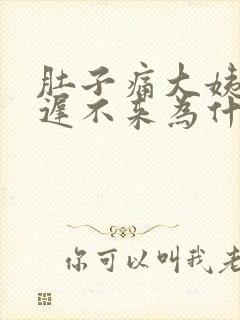 肚子痛大姨
遲不来為什
你可以叫我老